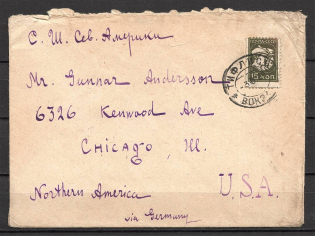 С. Ш. Сев. Америки
Mr. Gunnar Andersson
6326 Kenwood Ave
Chicago, Ill.
Northern America
U.S.A.
via Germany
15 КОП
ТИФЛИС
ВОКЗ